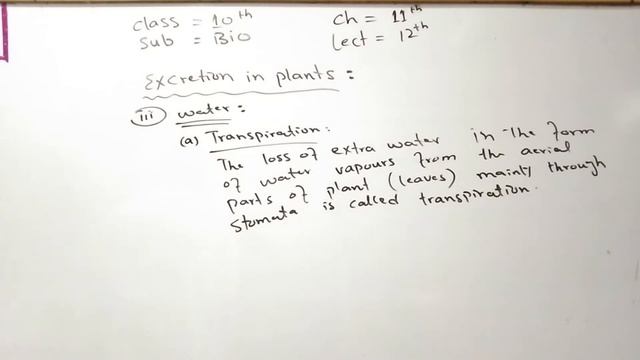 class = 10th
sub = Bio
ch = 11th
Lect = 12th
Excretion in plants :
iii water :
(a) Transpiration :
The loss of extra water in the form
of water vapours from the aerial
parts of plant (leaves) mainly through
stomata is called transpiration.